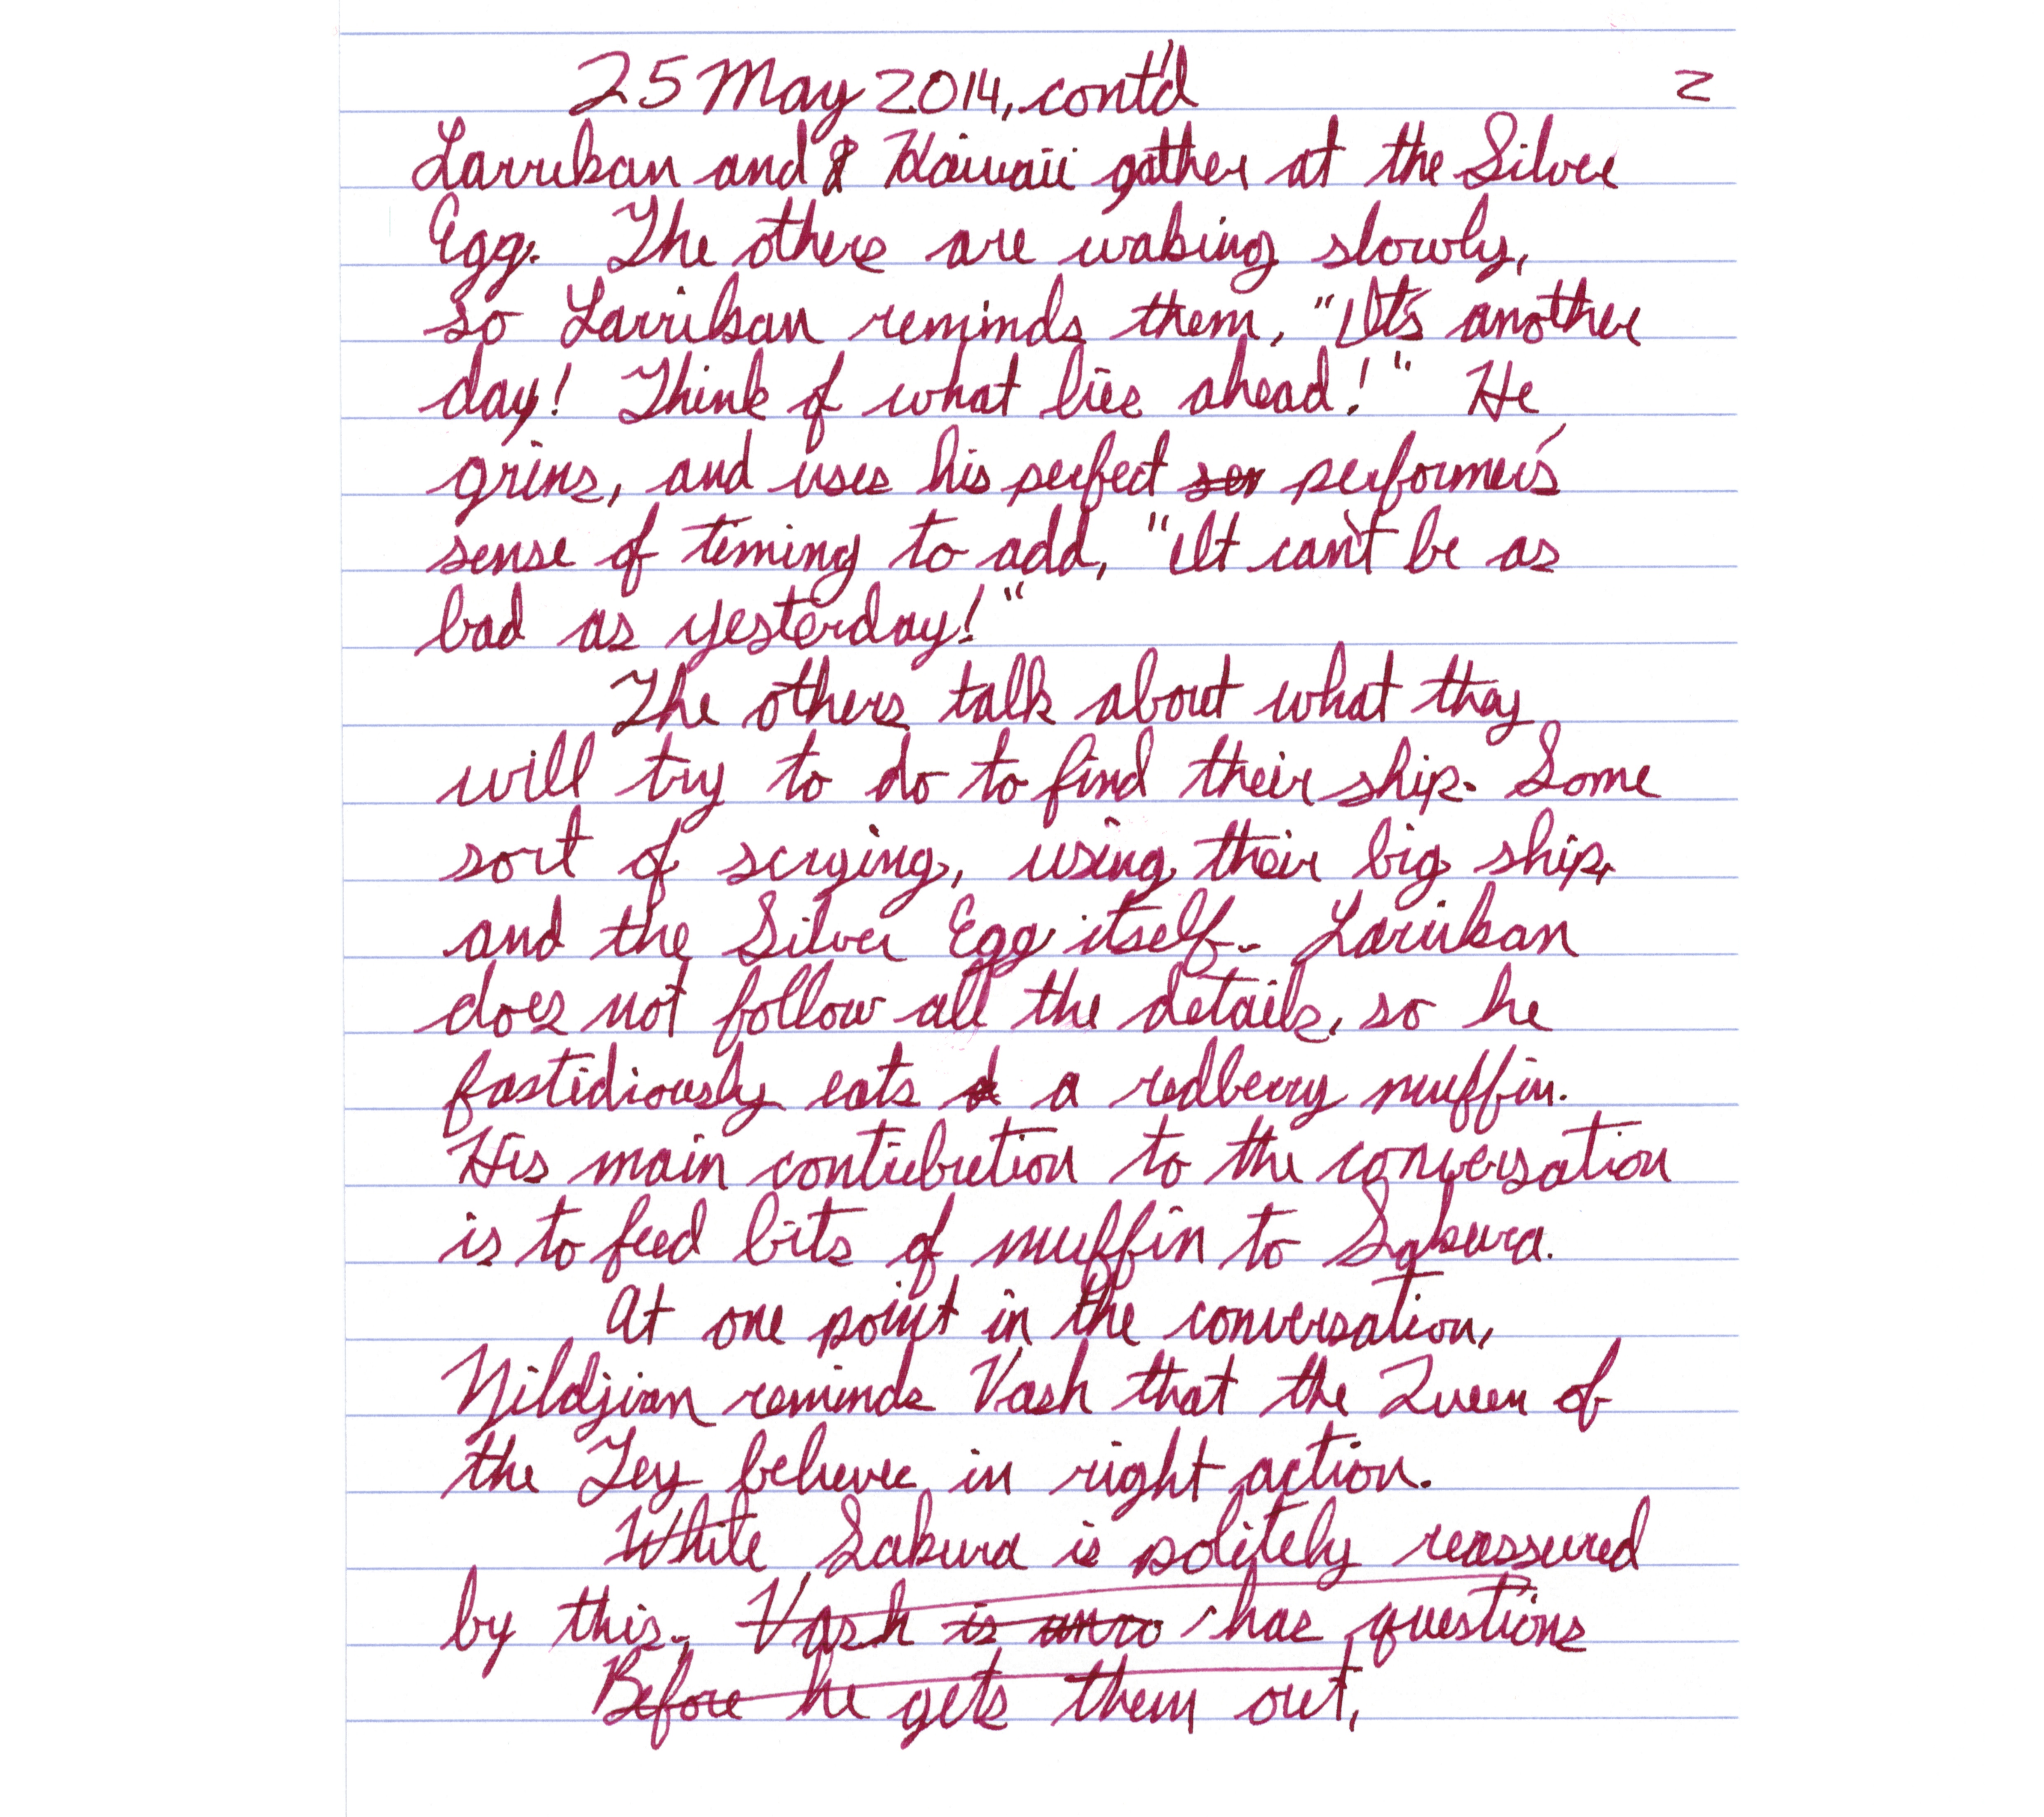 25 May 2014, cont'd 2
Larrikan and & Kaiwaii gather at the Silver
Egg. The others are waking slowly,
so Larrikan reminds them, "It's another
day! Think of what lies ahead!" He
grins, and uses his perfect sen performer's
sense of timing to add, "It can't be as
bad as yesterday!"
The others talk about what they
will try to do to find their ship. Some
sort of scrying, using their big ship,
and the Silver Egg itself. Larrikan
does not follow all the details, so he
fastidiously eats a redberry muffin.
His main contribution to the conversation
is to feed bits of muffin to Sakura.
At one point in the conversation,
Yildjian reminds Vash that the Queen of
the Tey believes in right action.
While Sakura is politely reassured
by this, Vash is unco has questions
Before he gets them out,